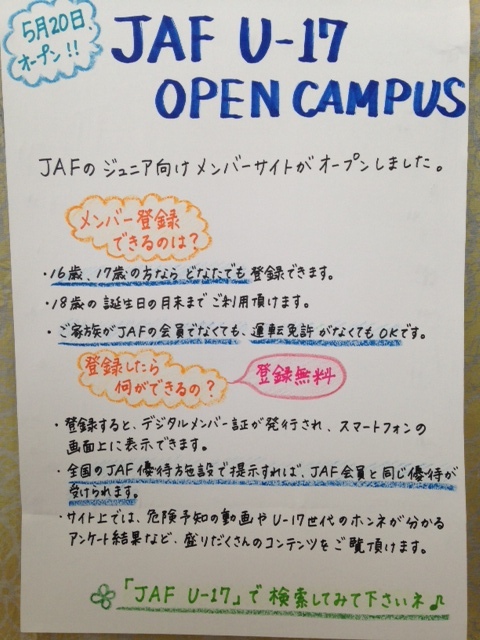 5月20日
オープン!!
JAF U-17
OPEN CAMPUS
JAFのジュニア向けメンバーサイトがオープンしました。
メンバー登録
できるのは?
・16歳、17歳の方ならどなたでも登録できます。
・18歳の誕生日の月末までご利用頂けます。
・ご家族がJAFの会員でなくても、運転免許がなくてもOKです。
登録したら
何ができるの?
登録無料
・登録すると、デジタルメンバー証が発行され、スマートフォンの
画面上に表示できます。
・全国のJAF優待施設で提示すれば、JAF会員と同じ優待が
受けられます。
・サイト上では、危険予知の動画やU-17世代のホンネが分かる
アンケート結果など、盛りだくさんのコンテンツをご覧頂けます。
「JAF U-17」で検索してみて下さいネ♪